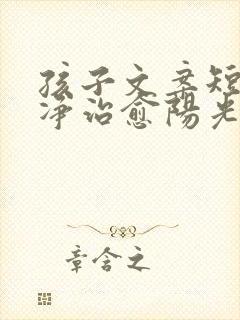 孩子文案短
净治愈阳光
章含之